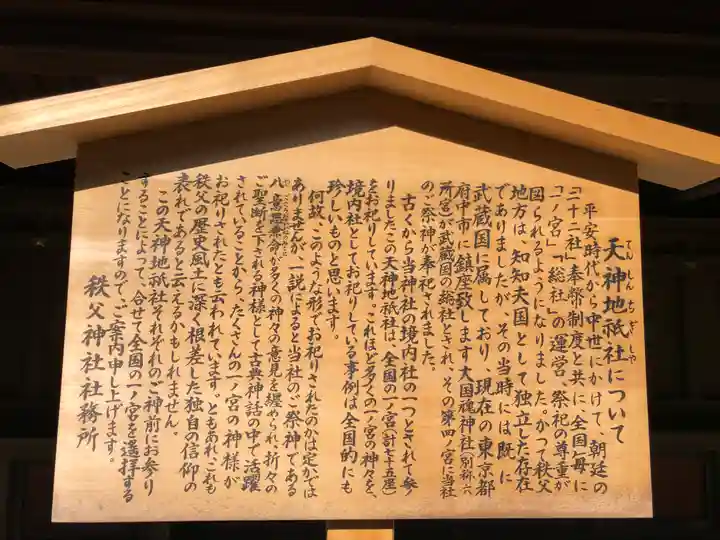 てんしんちぎしや
天神地祇社について
平安時代から中世にかけて、朝廷の
「二十二社」奉幣制度と共に、全国毎に
「一ノ宮」「総社」の運営、祭祀の尊重が
図られるようになりました。かつて秩父
地方は、知知夫国として独立した存在
でありましたが、その当時には既に
武蔵国に属しており、現在の東京都
府中市に鎮座致します大国魂神社(別称・六
所宮)が武蔵国の総社とされ、その第四ノ宮に当社
のご祭神が奉祀されました。
古くから当神社の境内社の一つとされて参
りましたこの天神地祇社は、全国の一ノ宮(計七十五座)
をお祀りしています。これほど多くの一ノ宮の神々を、
境内社としてお祀りしている事例は全国的にも
珍しいものと思います。
何故、このような形でお祀りされたのかは定かでは
ありませんが、一説によると当社のご祭神である
八意思兼命が多くの神々の意見を纏められ、折々の
ご聖断を下される神様として古典神話の中で活躍
されていることから、たくさんの一ノ宮の神様が
お祀りされたとも云われています。ともあれ、これも
秩父の歴史風土に深く根差した独自の信仰の
表れであると云えるかもしれません。
この天神地祇社それぞれのご神前にお参り
することによって、合せて全国の一ノ宮を遥拝する
ことになりますので、ご案内申し上げます。
秩父神社社務所